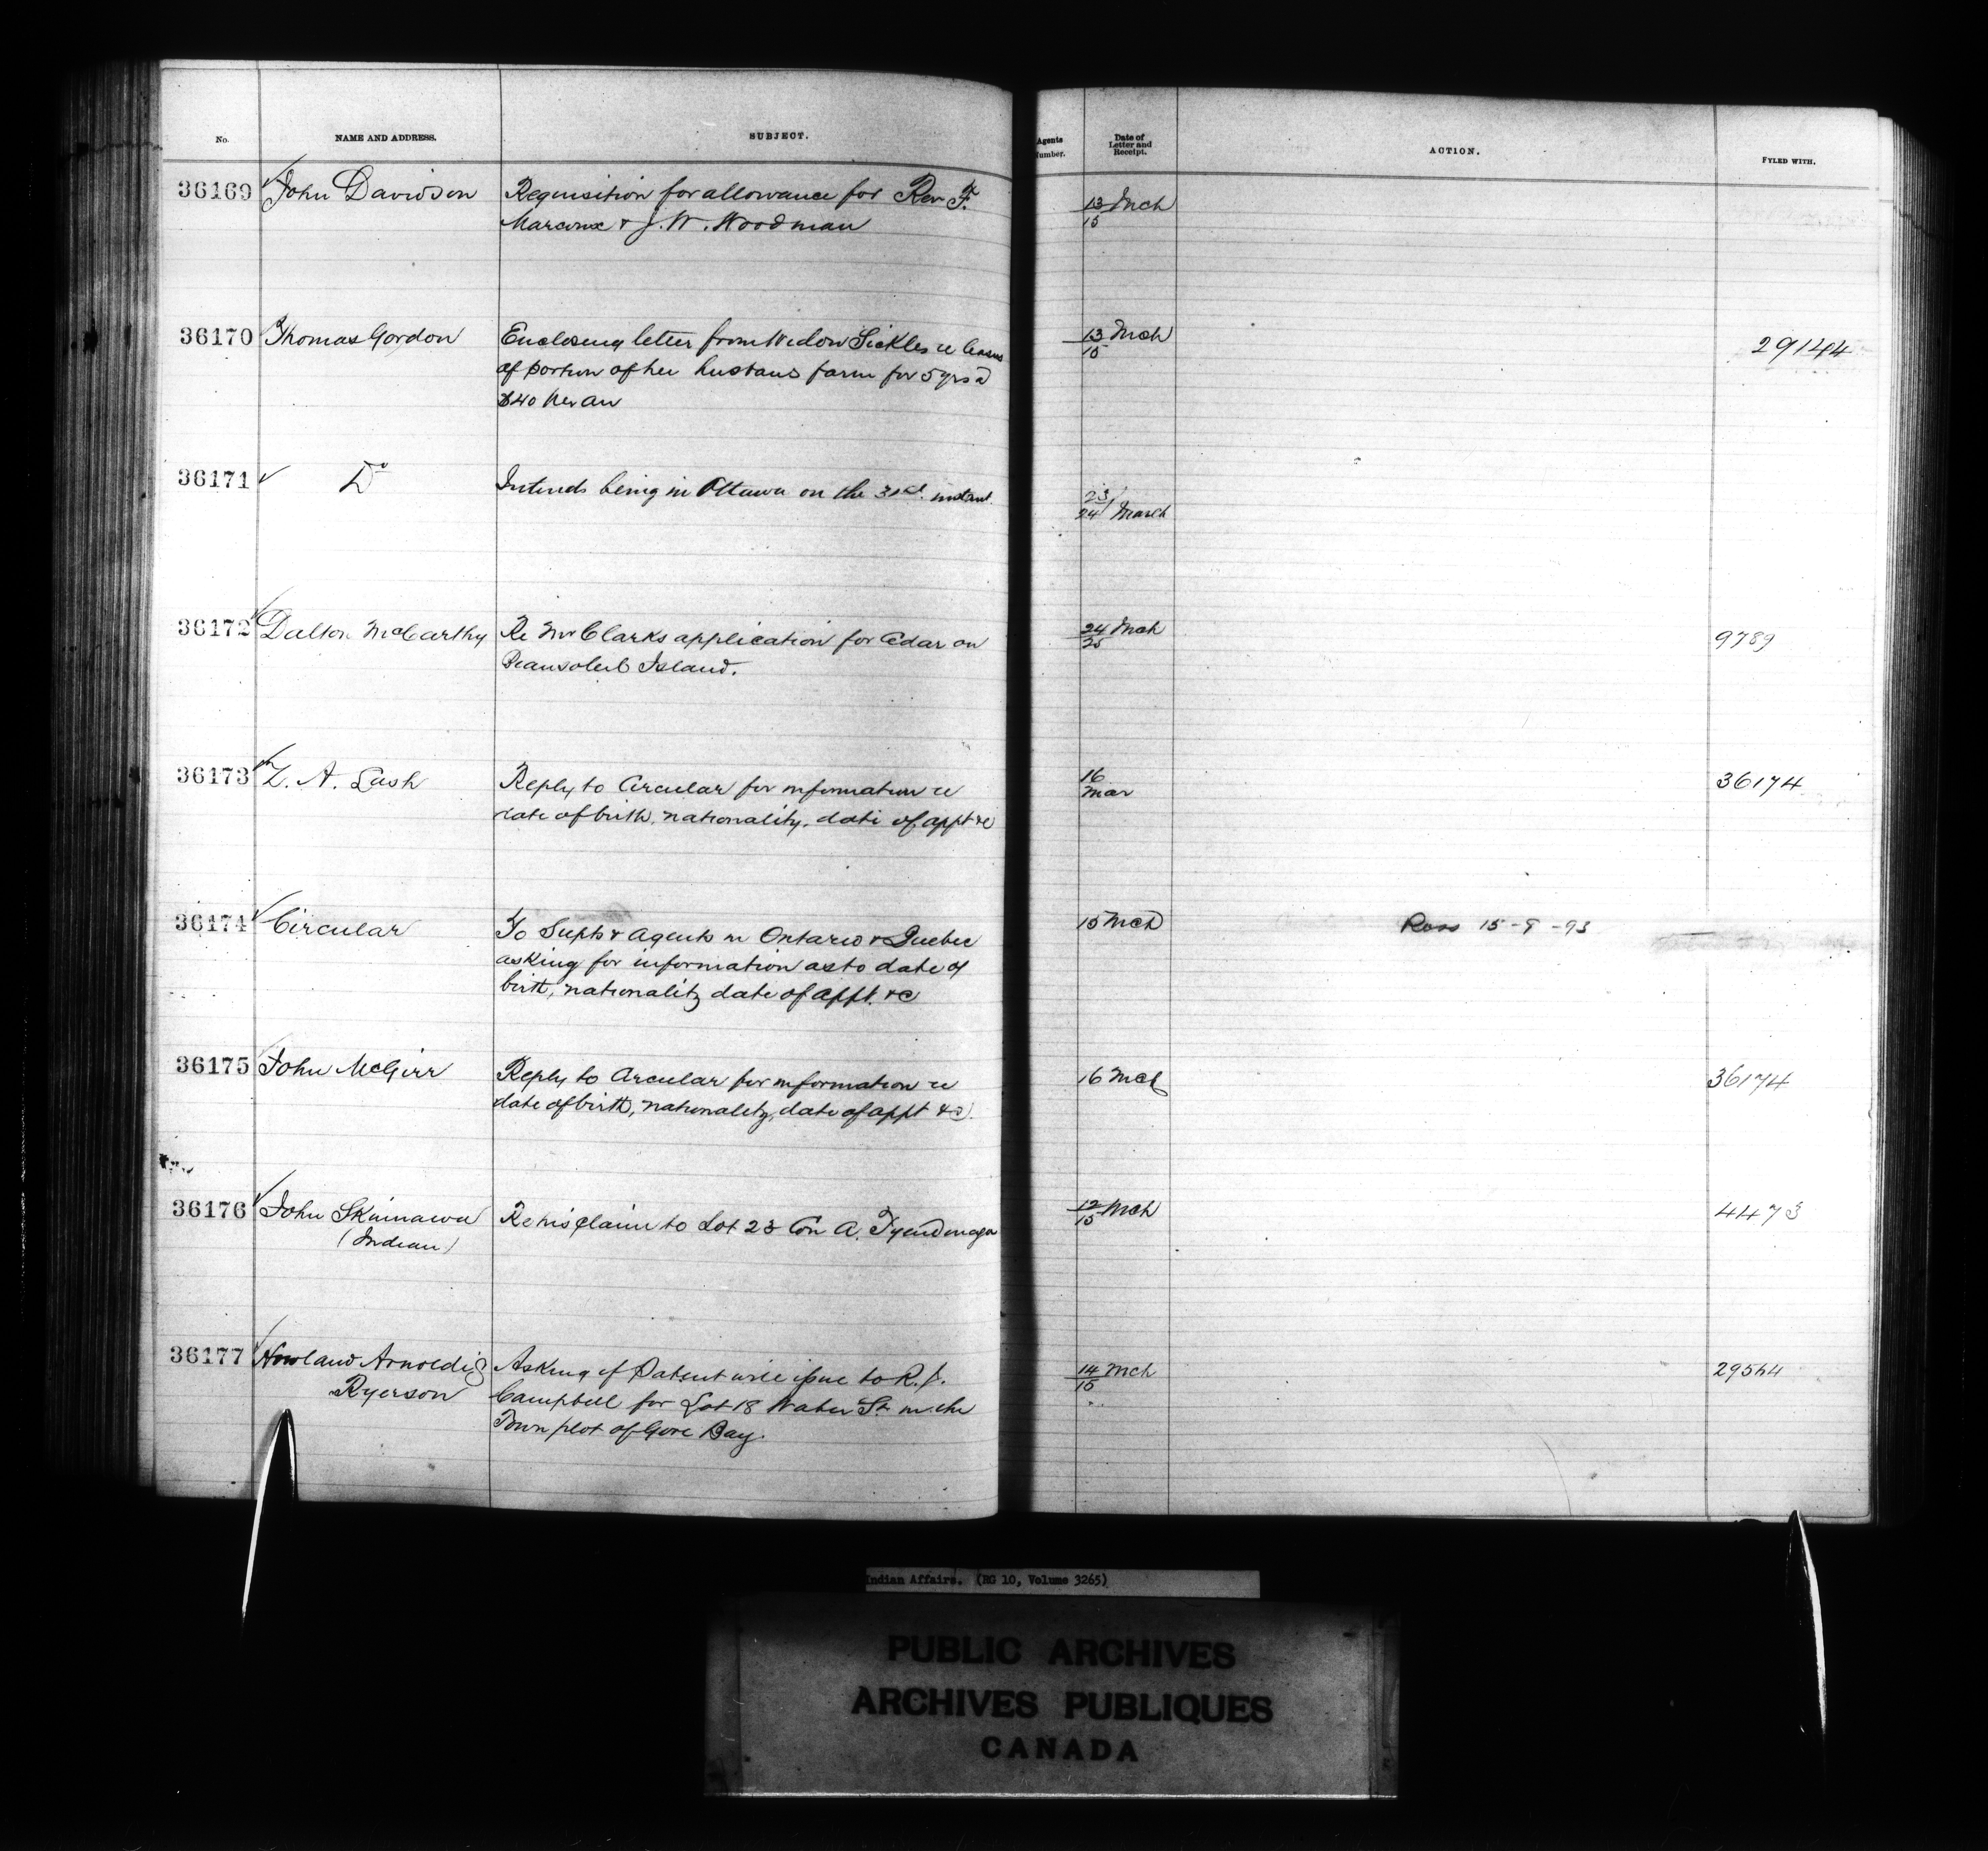 No. NAME AND ADDRESS. SUBJECT. Agents Number. Date of Letter and Receipt. ACTION. FYLED WITH.
36169 John Davidson Requisition for allowance for Rev F. 13/15 Mch
Marcoux & J. W. Woodman
36170 Thomas Gordon Enclosing letter from Widow Sickles re lease 13/15 Mch 29144
of portion of her husbans farm for 5 yrs @
$40 per an
36171 Do Intends being in Ottawa on the 31st. instant 23/24 March
36172 Dalton McCarthy Re Mr Clarks application for Cedar on 24/25 Mch 9789
Beausoleil Island.
36173 Z. A. Lash Reply to Circular for information re 16 Mar 36174
date of birth, nationality, date of appt &c
36174 Circular To Supts & Agents in Ontario & Quebec 15 Mch Ross 15-9-93
asking for information as to date of
birth, nationality date of appt. &c
36175 John McGirr Reply to Circular for information re 16 Mch 36174
date of birth, nationality, date of appt &c.
36176 John Skinnawa Re his claim to Lot 23 Con A. Tyendinaga 12/15 Mch 4473
(Indian)
36177 Howland Arnoldi & Asking if Patent will issue to R. J. 14/15 Mch 29564
Ryerson Campbell for Lot 18 Water St. in the
Town plot of Gore Bay.
Indian Affairs. (RG 10, Volume 3265)
PUBLIC ARCHIVES
ARCHIVES PUBLIQUES
CANADA